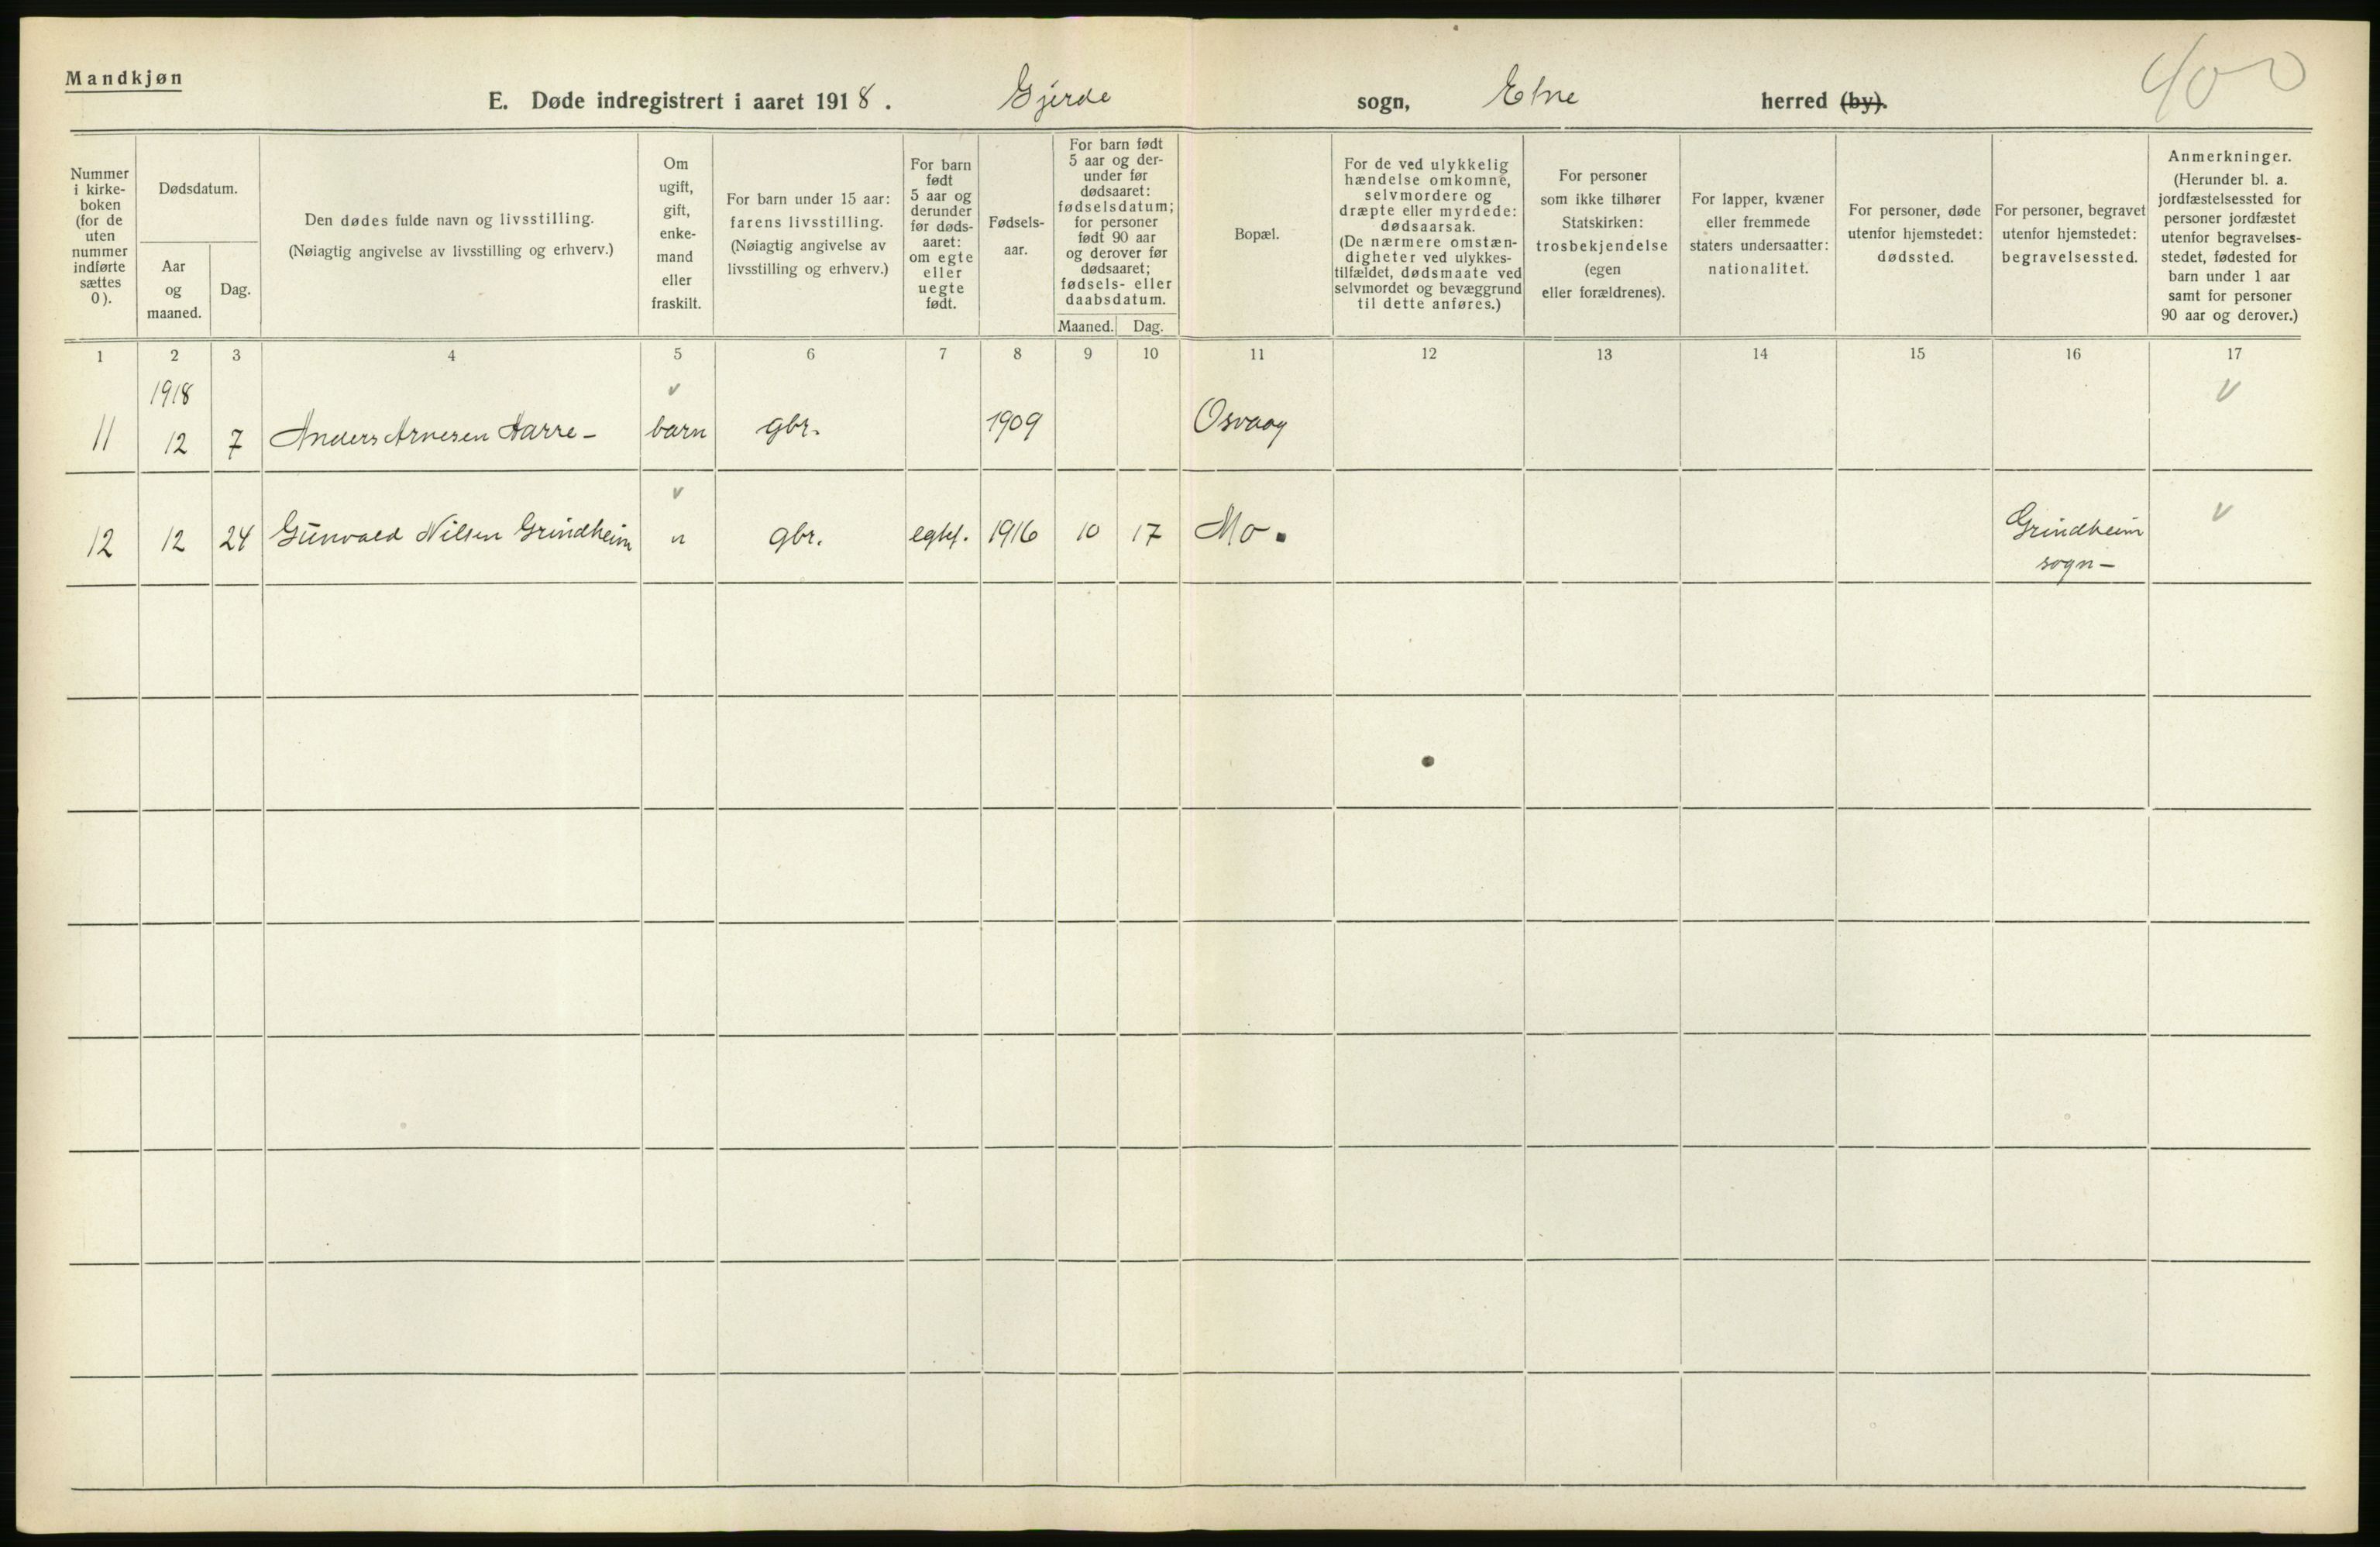 Mandkjøn
400
E. Døde indregistrert i aaret 1918. Gjerde sogn, Etne herred (by).
Nummer
i kirke-
boken
(for de
uten
nummer
indførte
sættes
0).
Dødsdatum.
Aar
og
maaned.
Dag.
Den dødes fulde navn og livsstilling.
(Nøiagtig angivelse av livsstilling og erhverv.)
Om
ugift,
gift,
enke-
mand
eller
fraskilt.
For barn under 15 aar:
farens livsstilling.
(Nøiagtig angivelse av
livsstilling og erhverv.)
For barn
født
5 aar og
derunder
før døds-
aaret:
om egte
eller
uegte
født.
Fødsels-
aar.
For barn født
5 aar og der-
under før
dødsaaret:
fødselsdatum;
for personer
født 90 aar
og derover før
dødsaaret;
fødsels- eller
daabsdatum.
Maaned. Dag.
Bopæl.
For de ved ulykkelig
hændelse omkomne,
selvmordere og
dræpte eller myrdede:
dødsaarsak.
(De nærmere omstæn-
digheter ved ulykkes-
tilfældet, dødsmaate ved
selvmordet og bevæggrund
til dette anføres.)
For personer
som ikke tilhører
Statskirken:
trosbekjendelse
(egen
eller forældrenes).
For lapper, kvæner
eller fremmede
staters undersaatter:
nationalitet.
For personer, døde
utenfor hjemstedet:
dødssted.
For personer, begravet
utenfor hjemstedet:
begravelsessted.
Anmerkninger.
(Herunder bl. a.
jordfæstelsessted for
personer jordfæstet
utenfor begravelses-
stedet, fødested for
barn under 1 aar
samt for personer
90 aar og derover.)
1 2 3 4 5 6 7 8 9 10 11 12 13 14 15 16 17
1918 v v
11 12 7 Anders Arnesen Harre - barn gbr. 1909 Osvaag
v v
12 12 24 Gunvald Nilsen Grindheim " gbr. egtef. 1916 10 17 Mo. Grindheim
sogn -